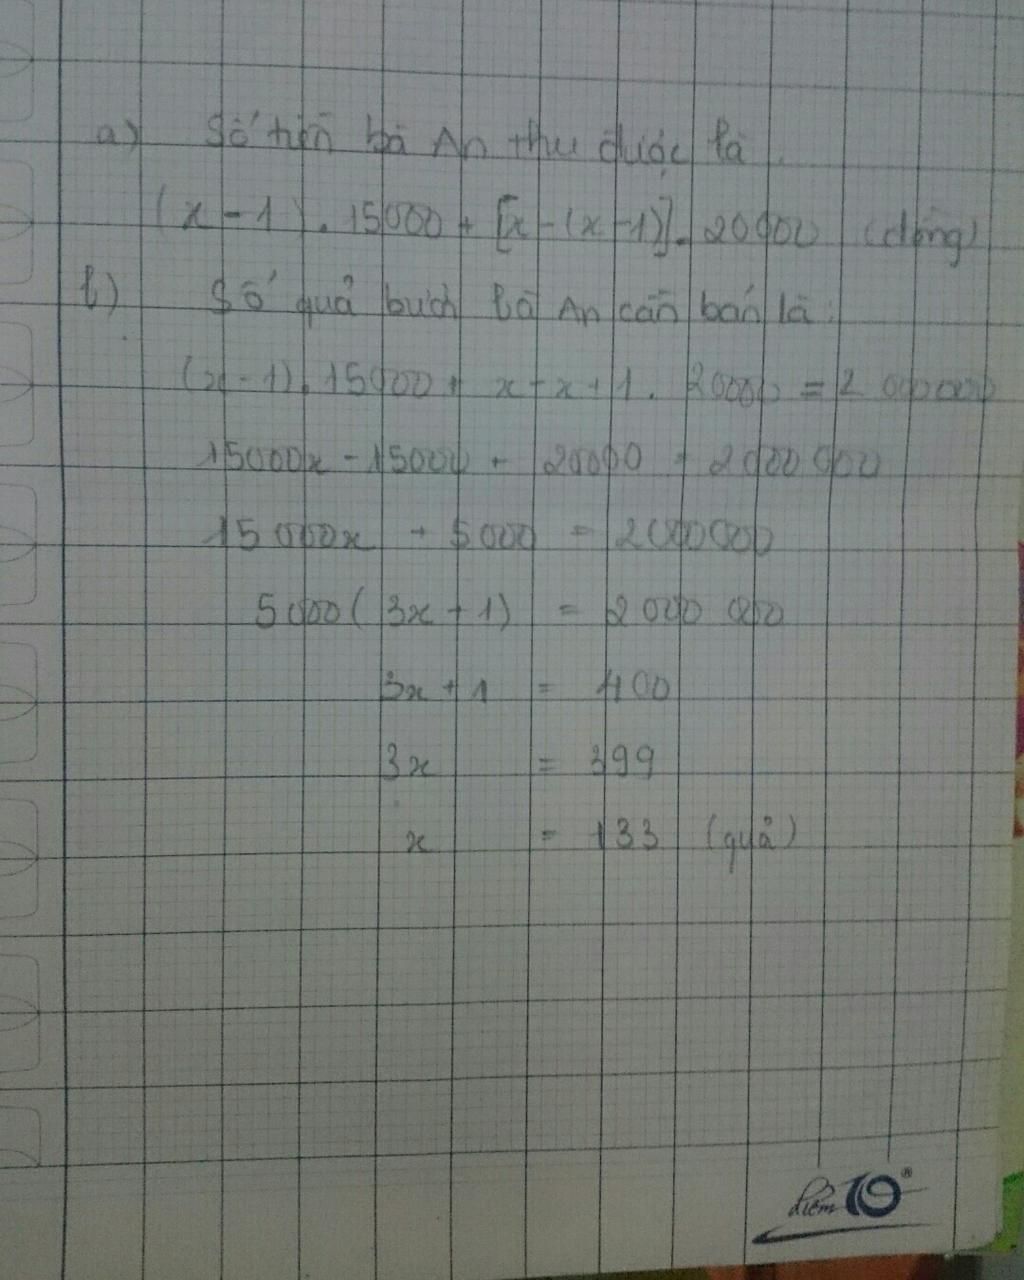 a) Số tiền bà An thu được là
(x - 1) . 15000 + [x - (x - 1)] . 20000 (đồng)
b) Số quả bưởi bà An cần bán là:
(x - 1) . 15000 + x - x + 1 . 20000 = 2 000000
15000x - 15000 + 20000 = 2000 000
15 000x + 5000 = 2000000
5000 ( 3x + 1) = 2000 000
3x + 1 = 400
3x = 399
x = 133 (quả)
điểm 10®